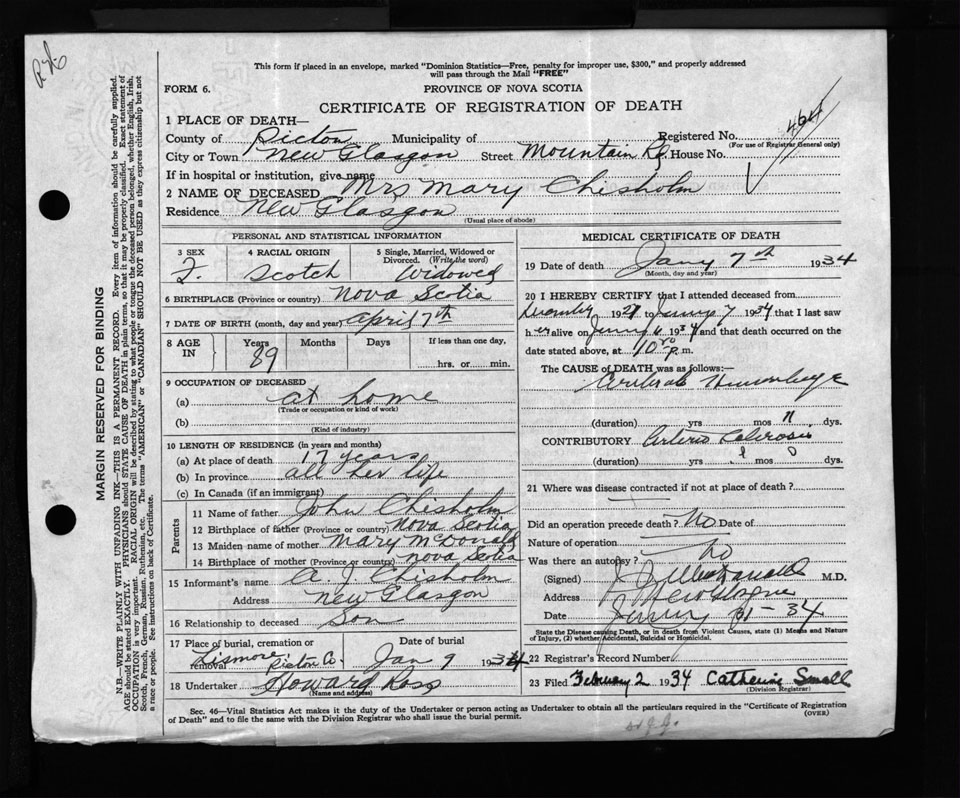 This form if placed in an envelope, marked "Dominion Statistics—Free, penalty for improper use, $300," and properly addressed
will pass through the Mail "FREE"
FORM 6.
PROVINCE OF NOVA SCOTIA
CERTIFICATE OF REGISTRATION OF DEATH
1 PLACE OF DEATH—
County of Pictou Municipality of Registered No. 464
(For use of Registrar General only)
City or Town New Glasgow Street Mountain Rd. House No.
If in hospital or institution, give name
2 NAME OF DECEASED Mrs Mary Chisholm
Residence New Glasgow
(Usual place of abode)
PERSONAL AND STATISTICAL INFORMATION
3 SEX
F.
4 RACIAL ORIGIN
Scotch
5 Single, Married, Widowed or
Divorced. (Write the word)
Widowed
6 BIRTHPLACE (Province or country) Nova Scotia
7 DATE OF BIRTH (month, day and year) April 7th
8 AGE
IN
Years
89
Months
Days
If less than one day,
hrs. or min.
9 OCCUPATION OF DECEASED
(a) at home
(Trade or occupation or kind of work)
(b)
(Kind of industry)
10 LENGTH OF RESIDENCE (in years and months)
(a) At place of death 17 years
(b) In province all her life
(c) In Canada (if an immigrant)
Parents
11 Name of father John Chisholm
12 Birthplace of father (Province or country) Nova Scotia
13 Maiden name of mother Mary McDonald
14 Birthplace of mother (Province or country) Nova Scotia
15 Informant's name A. J. Chisholm
Address New Glasgow
16 Relationship to deceased Son
17 Place of burial, cremation or
removal Lismore, Pictou Co.
Date of burial
Jan 9 1934
18 Undertaker Howard Ross
(Name and address)
MEDICAL CERTIFICATE OF DEATH
19 Date of death Jany 7th 1934
(Month, day and year)
20 I HEREBY CERTIFY that I attended deceased from
December 19 to 7 1934 that I last saw
h er alive on 6 1934 and that death occurred on
the date stated above, at 10 p.m.
The CAUSE of DEATH was as follows:—
Cerebral Hemorrhage
(duration) yrs mos dys.
CONTRIBUTORY Arterio Sclerosis
(duration) yrs mos dys.
21 Where was disease contracted if not at place of death?
Did an operation precede death? No Date of
Nature of operation
Was there an autopsy? No
(Signed) M.D.
Address New Glasgow
Date 34
State the Disease causing Death, or in death from Violent Causes, state (1) Means and Nature
of Injury, (2) whether Accidental, Suicidal or Homicidal.
22 Registrar's Record Number
23 Filed February 2 1934 Catherine Small
(Division Registrar)
Sec. 46—Vital Statistics Act makes it the duty of the Undertaker or person acting as Undertaker to obtain all the particulars required in the "Certificate of Registration
of Death" and to file the same with the Division Registrar who shall issue the burial permit.
(OVER)
MARGIN RESERVED FOR BINDING
N.B—WRITE PLAINLY WITH UNFADING INK—THIS IS A PERMANENT RECORD. Every item of information should be carefully supplied.
AGE should be stated EXACTLY. PHYSICIANS should STATE CAUSE OF DEATH in plain terms, so that it may be properly classified. Exact statement of
OCCUPATION is very important. RACIAL ORIGIN will be described by stating to what people or tongue the deceased person belonged, whether English, Irish,
Scotch, French, German, Russian, Ruthenian, etc. The terms "AMERICAN" or "CANADIAN" SHOULD NOT BE USED as they express citizenship but not
a race or people. See instructions on back of Certificate.